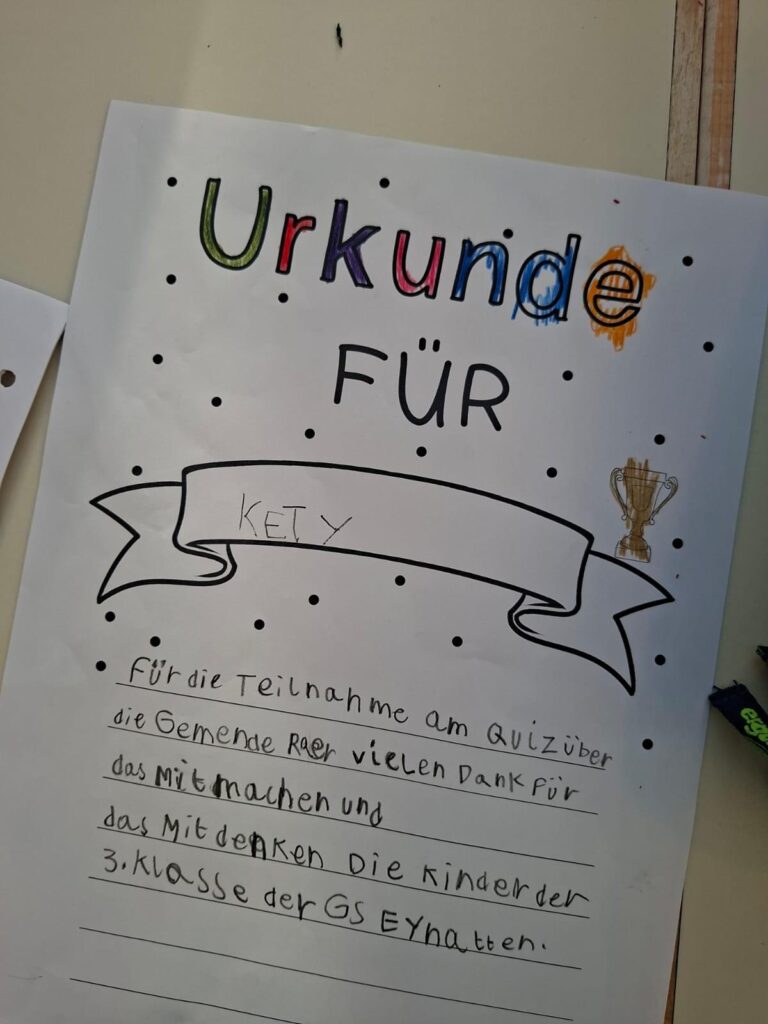 Urkunde
FÜR
KETY
Für die Teilnahme am QUIZ über
die Gemende Raer vielen Dank für
das Mitmachen und
das Mitdenken Die Kinder der
3. Klasse der GS EYnatten.